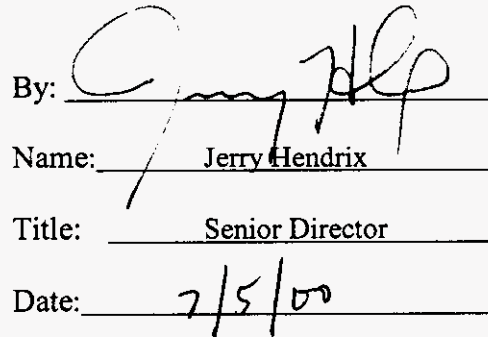 By: Jerry
Name: Jerry Hendrix
Title: Senior Director
Date: 7/5/00